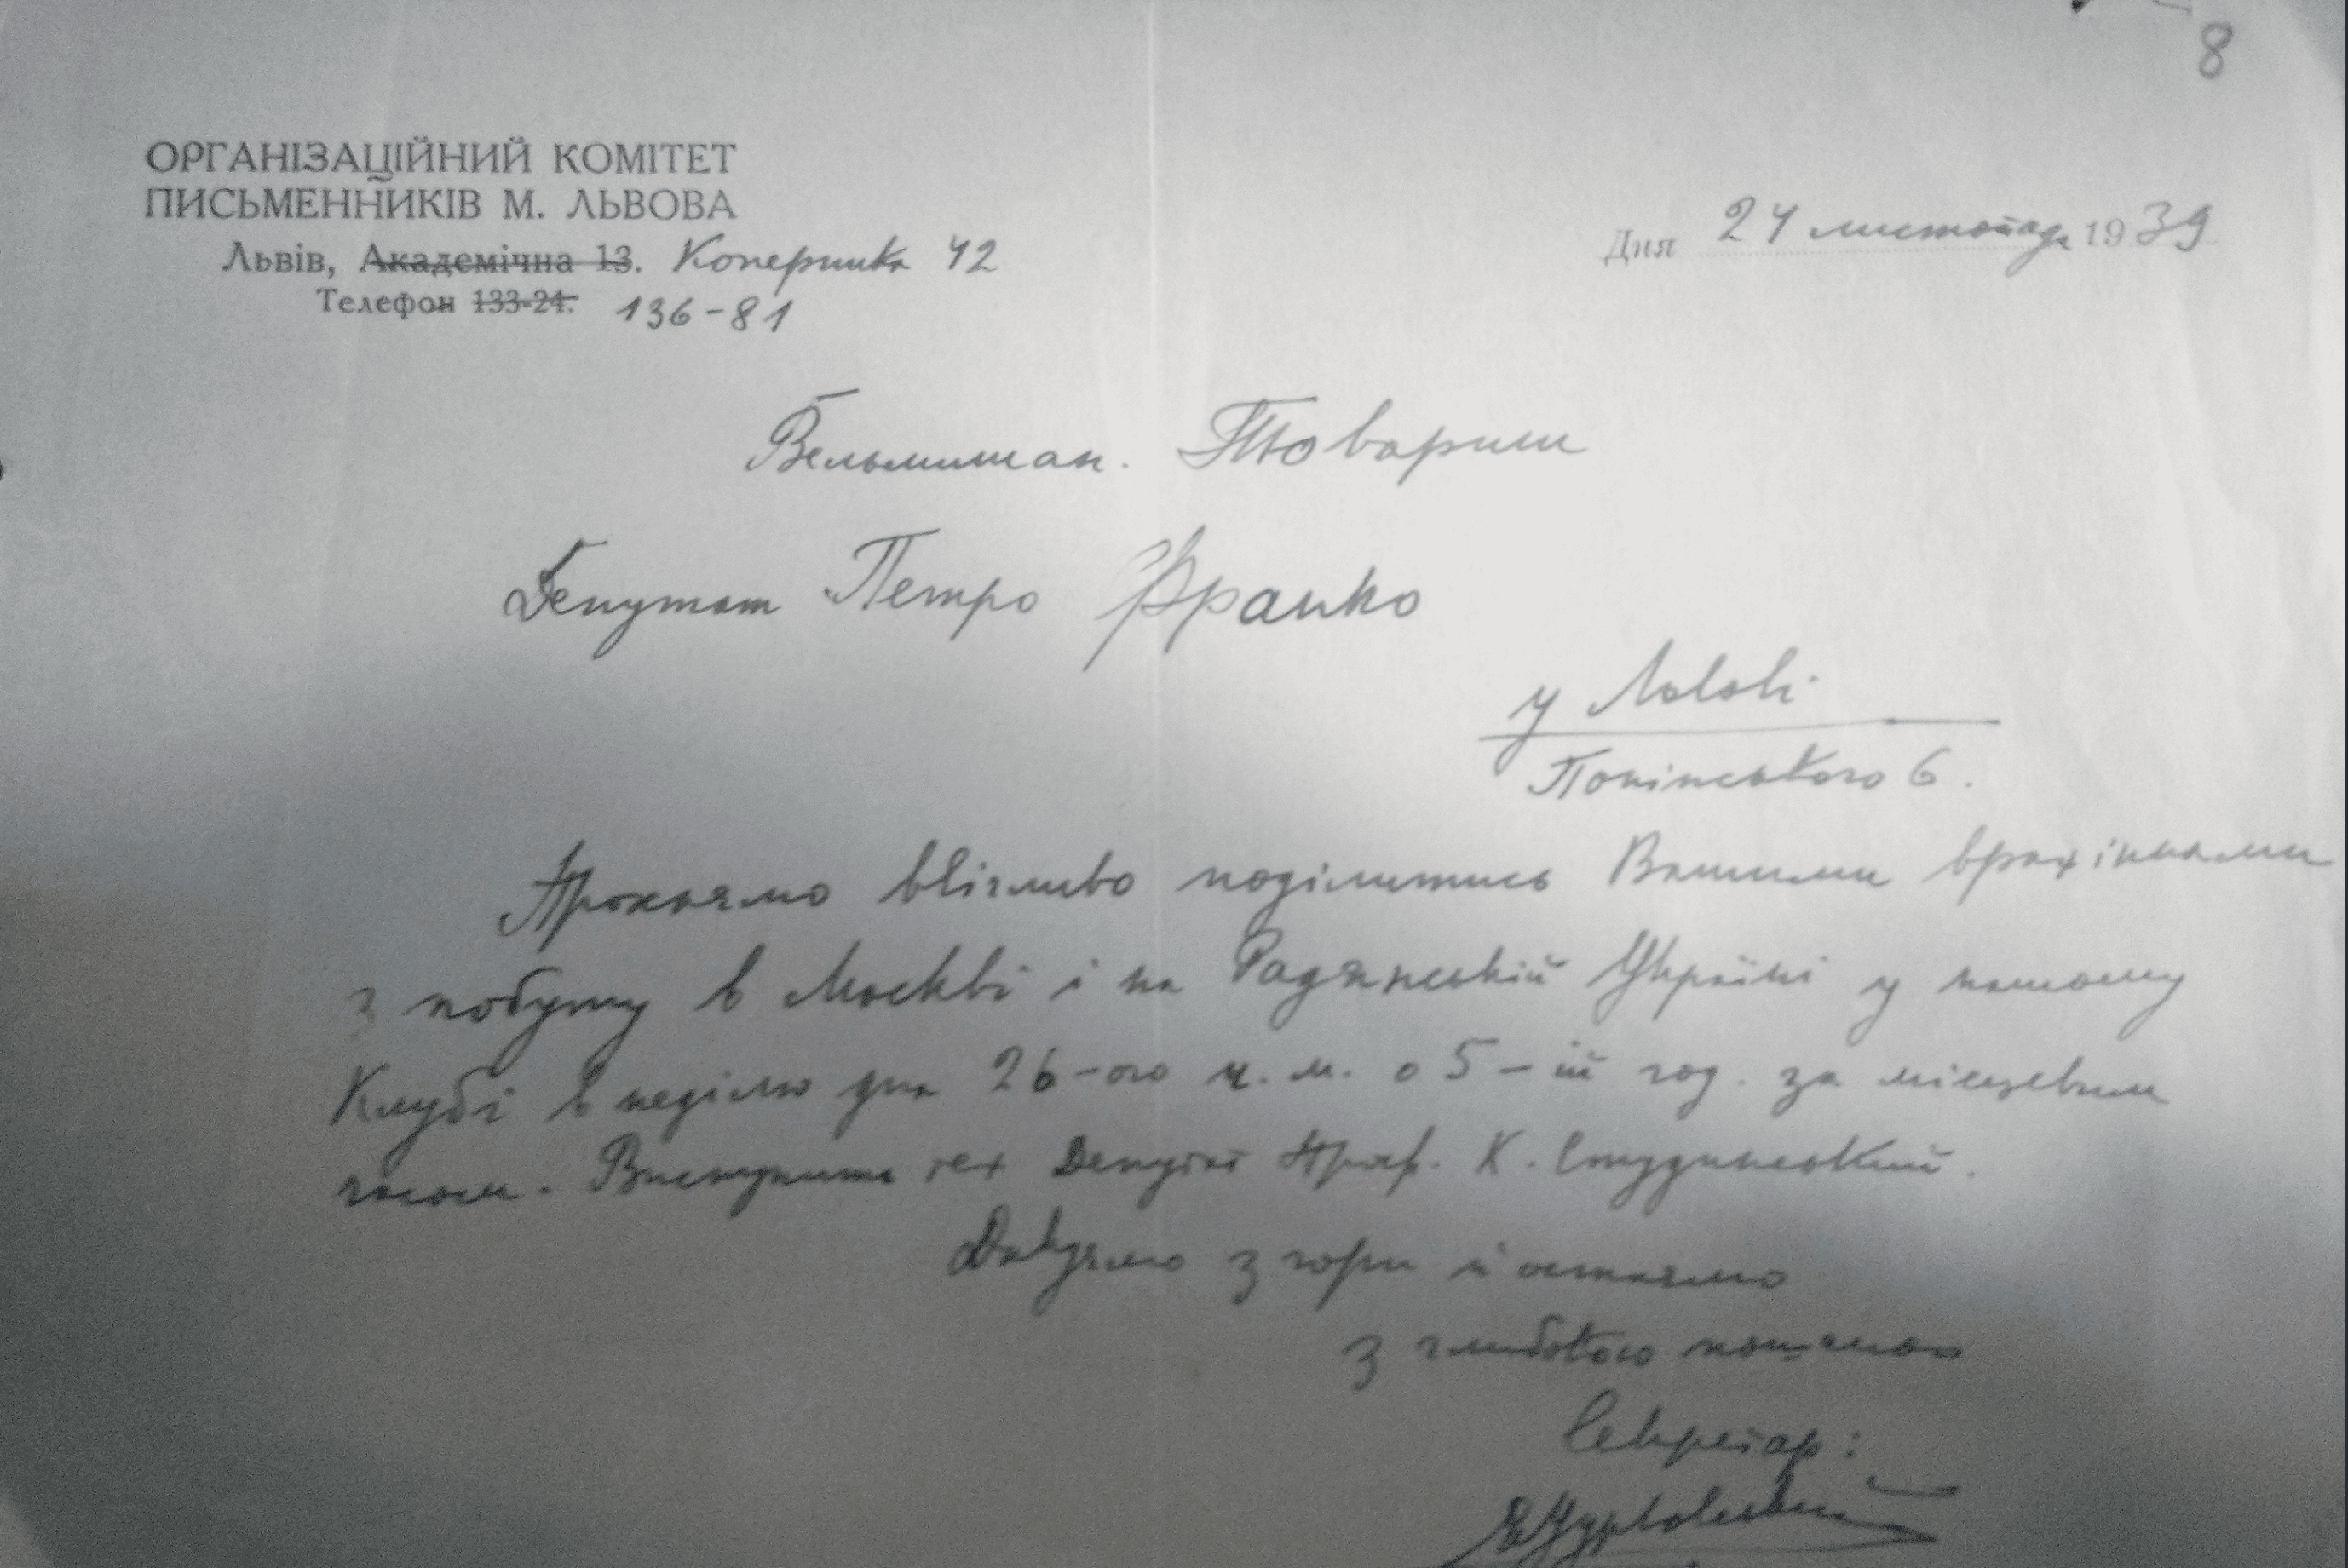 8
ОРГАНІЗАЦІЙНИЙ КОМІТЕТ
ПИСЬМЕННИКІВ М. ЛЬВОВА
Львів, Академічна 13. Коперника 42
Телефон 133-24. 136-81
Дня 24 листопада 1939
Вельмишан. Товариш
Депутат Петро Франко
у Львові
6.
Прохаємо ввічливо поділитись Вашими вражіннями
з побуту в Москві і на Радянській Україні у нашому
Клубі в неділю дня 26-ого ц. м. о 5-ій год. за місцевим
часом. Виступить теж Депутат Проф. К. Студинський.
Дякуємо з гори й остаємо
з глибокою пошаною
Секретар: